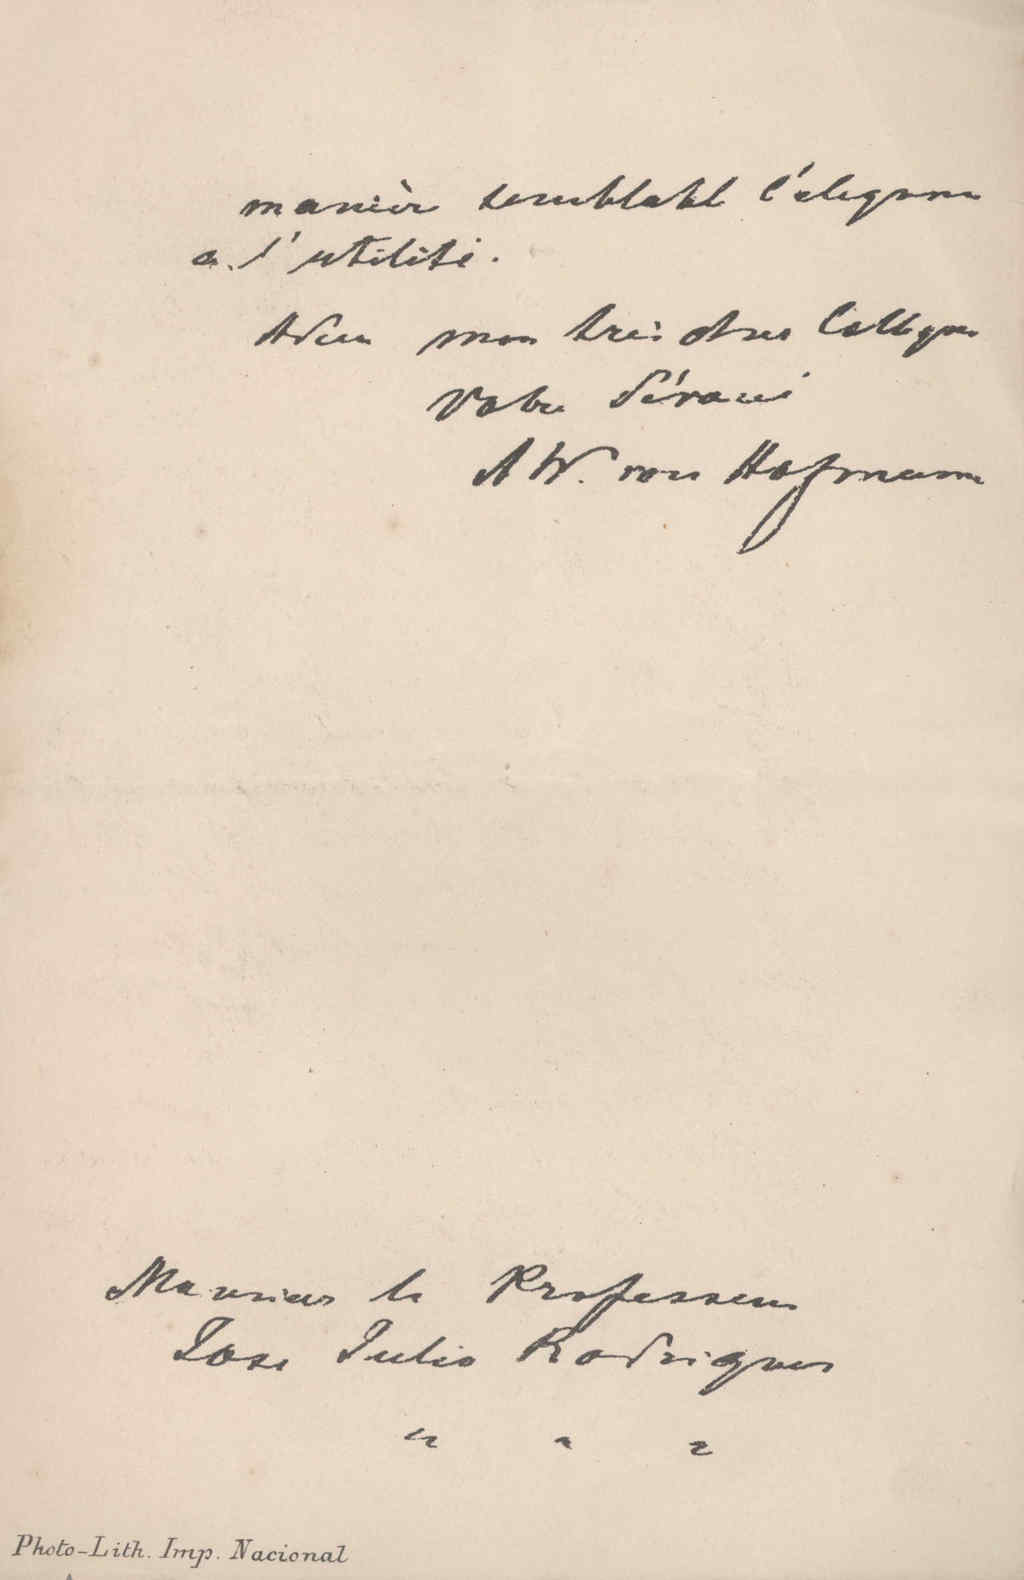 manière semblable l'elegance
a l'utilité.
Adieu mon très cher Collegue
Votre dévoué
A W. von Hofmann
Monsieur le Professeur
Jose Julio Rodrigues
" " "
Photo-Lith. Imp. Nacional